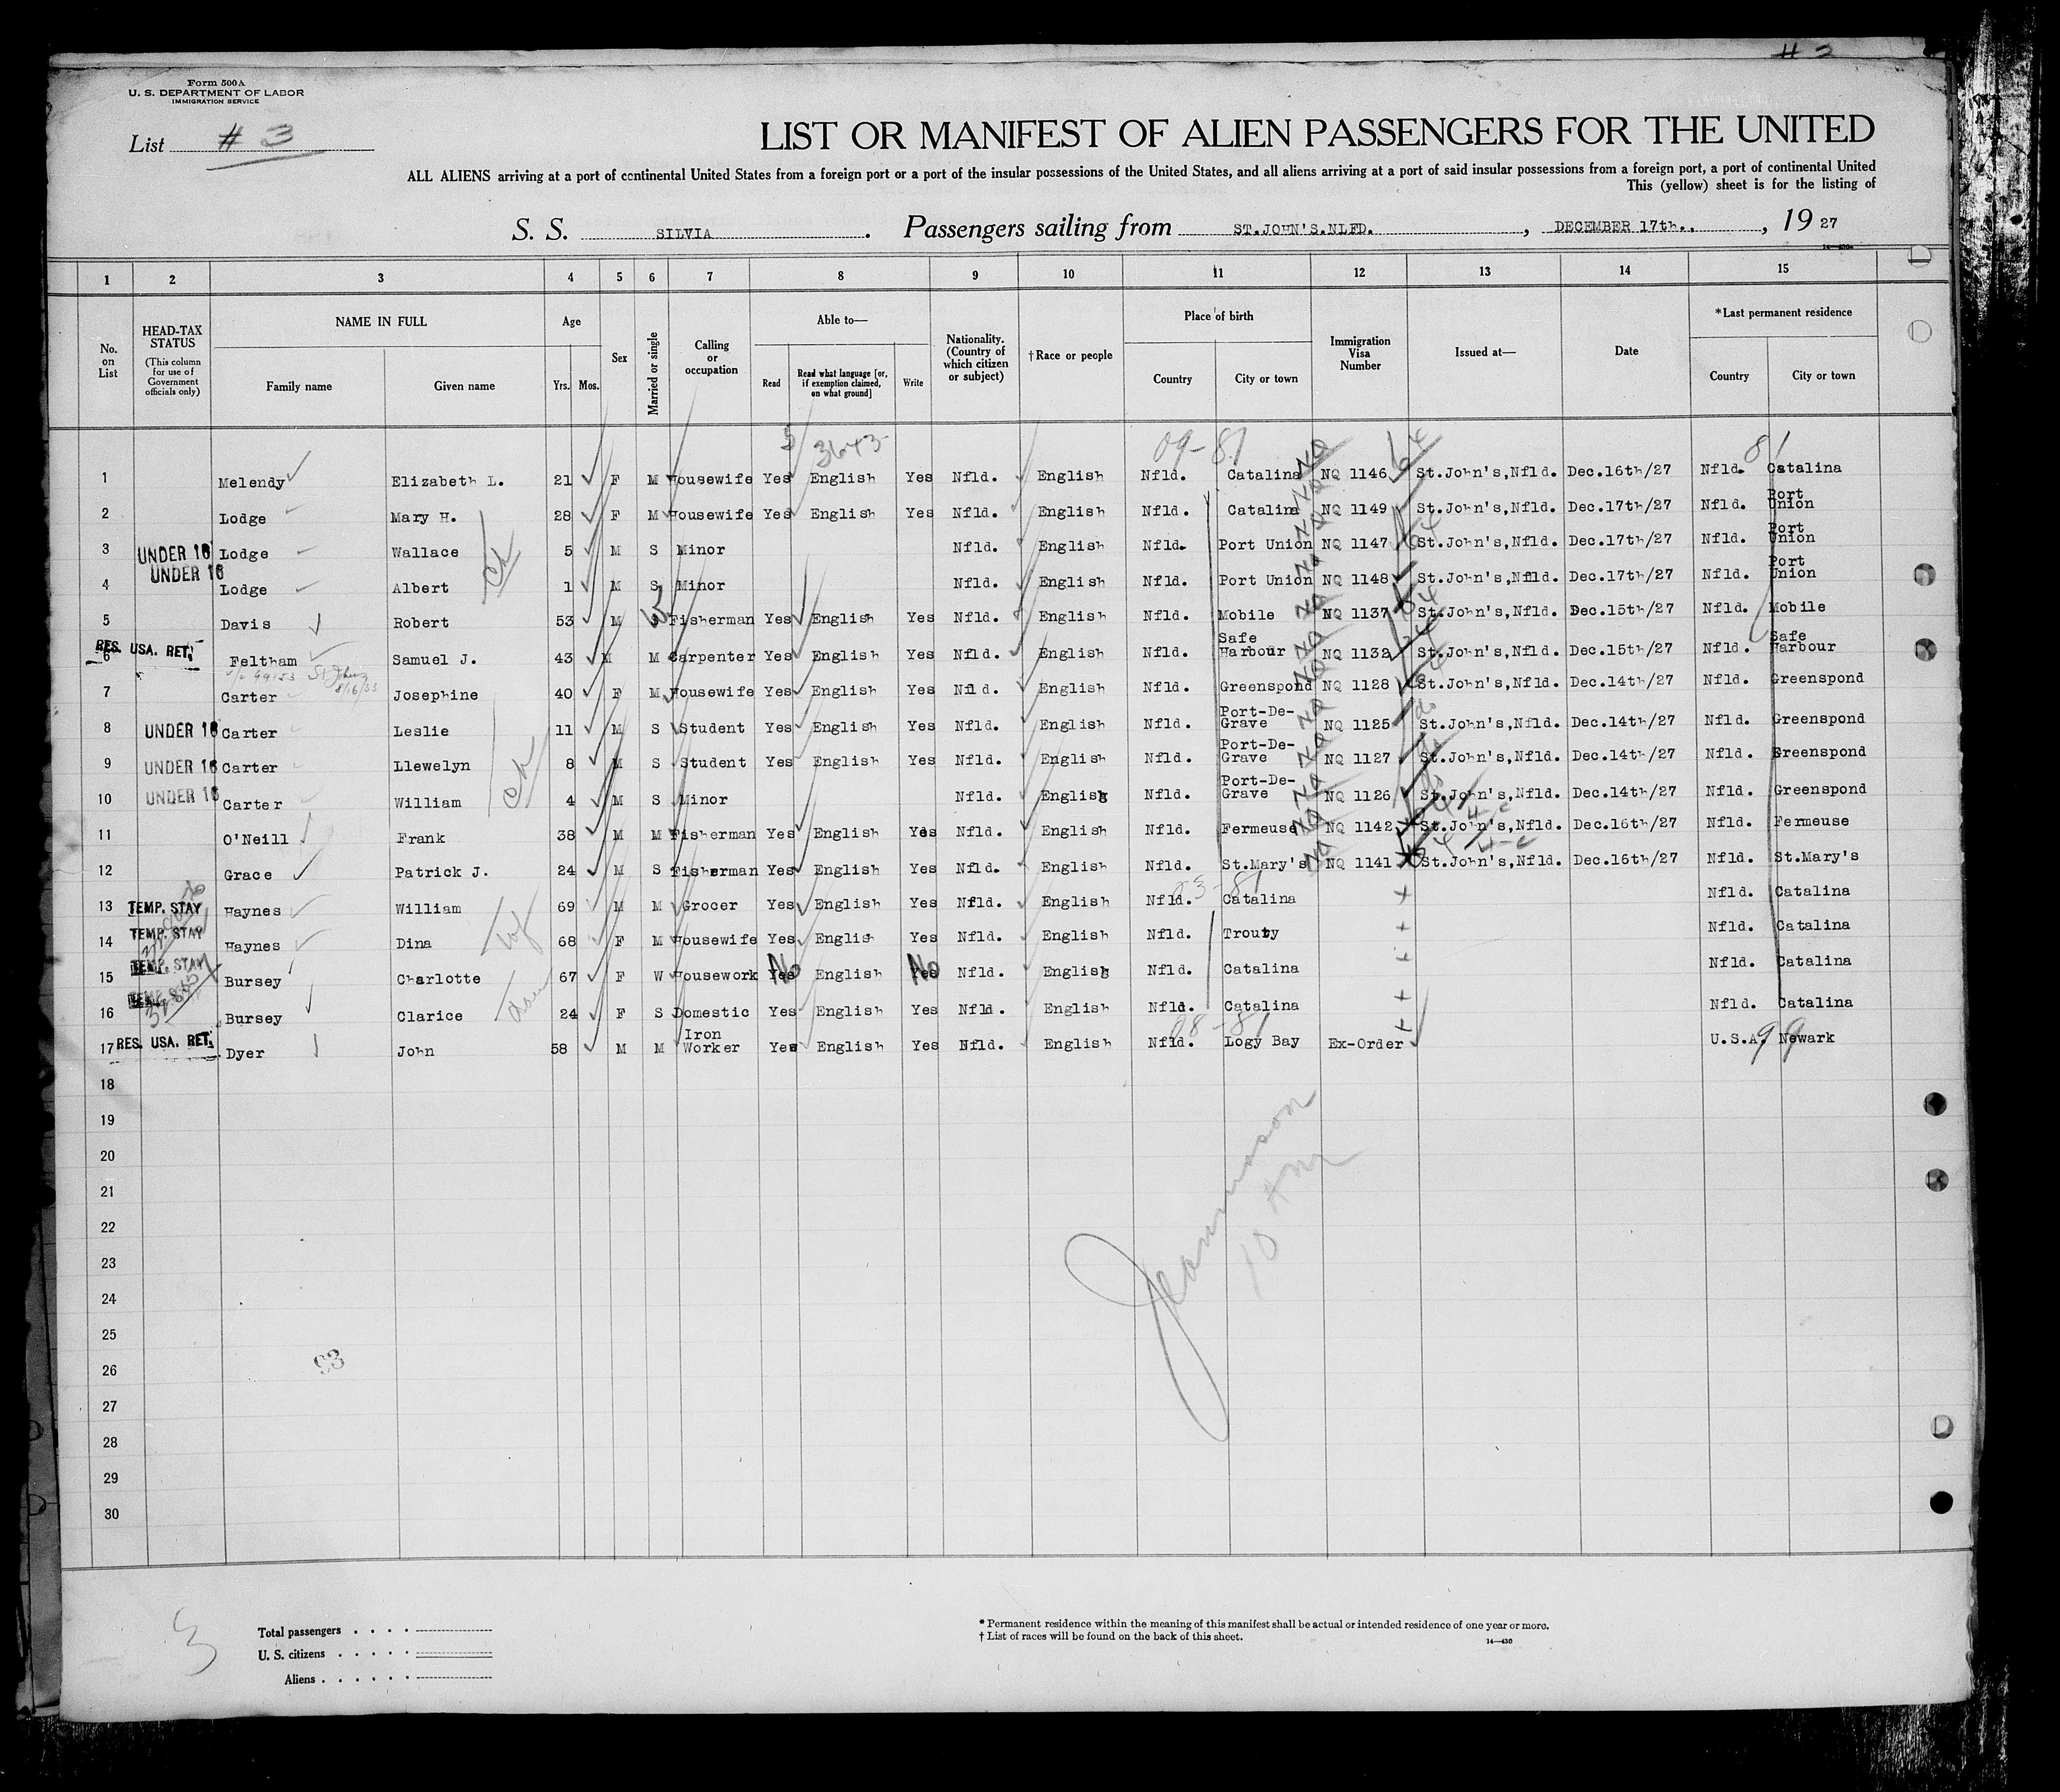 # 3
Form 500A
U. S. DEPARTMENT OF LABOR
IMMIGRATION SERVICE
List # 3
LIST OR MANIFEST OF ALIEN PASSENGERS FOR THE UNITED
ALL ALIENS arriving at a port of continental United States from a foreign port or a port of the insular possessions of the United States, and all aliens arriving at a port of said insular possessions from a foreign port, a port of continental United
This (yellow) sheet is for the listing of
S. S. SILVIA. Passengers sailing from ST.JOHN'S.NLFD., DECEMBER 17th., 19 27
14—430a
1 2 3 4 5 6 7 8 9 10 11 12 13 14 15
No. on List
HEAD-TAX STATUS (This column for use of Government officials only)
NAME IN FULL Family name Given name
Age Yrs. Mos.
Sex
Married or single
Calling or occupation
Able to— Read Read what language [or, if exemption claimed, on what ground] Write
Nationality. (Country of which citizen or subject)
†Race or people
Place of birth Country City or town
Immigration Visa Number
Issued at—
Date
*Last permanent residence Country City or town
3 3643 09-81 81
1 Melendy Elizabeth L. 21 F M Housewife Yes English Yes Nfld. English Nfld. Catalina NQ 1146 St.John's,Nfld. Dec.16th/27 Nfld. Catalina
2 Lodge Mary H. 28 F M Housewife Yes English Yes Nfld. English Nfld. Catalina NQ 1149 St.John's,Nfld. Dec.17th/27 Nfld. Port Union
3 UNDER 16 Lodge Wallace 5 M S Minor Nfld. English Nfld. Port Union NQ 1147 St.John's,Nfld. Dec.17th/27 Nfld. Port Union
4 UNDER 16 Lodge Albert 1 M S Minor Nfld. English Nfld. Port Union NQ 1148 St.John's,Nfld. Dec.17th/27 Nfld. Port Union
5 Davis Robert 53 M W Fisherman Yes English Yes Nfld. English Nfld. Mobile NQ 1137 St.John's,Nfld. Dec.15th/27 Nfld. Mobile
6 RES. USA. RET. Feltham Samuel J. 43 M M Carpenter Yes English Yes Nfld. English Nfld. Safe Harbour NQ 1132 St.John's,Nfld. Dec.15th/27 Nfld. Safe Harbour
99153 St Johns 8/16/33
7 Carter Josephine 40 F M Housewife Yes English Yes Nfld. English Nfld. Greenspond NQ 1128 St.John's,Nfld. Dec.14th/27 Nfld. Greenspond
8 UNDER 16 Carter Leslie 11 M S Student Yes English Yes Nfld. English Nfld. Port-De-Grave NQ 1125 St.John's,Nfld. Dec.14th/27 Nfld. Greenspond
9 UNDER 16 Carter Llewelyn 8 M S Student Yes English Yes Nfld. English Nfld. Port-De-Grave NQ 1127 St.John's,Nfld. Dec.14th/27 Nfld. Greenspond
10 UNDER 16 Carter William 4 M S Minor Nfld. English Nfld. Port-De-Grave NQ 1126 St.John's,Nfld. Dec.14th/27 Nfld. Greenspond
11 O'Neill Frank 38 M M Fisherman Yes English Yes Nfld. English Nfld. Fermeuse NQ 1142 St.John's,Nfld. Dec.16th/27 Nfld. Fermeuse
12 Grace Patrick J. 24 M S Fisherman Yes English Yes Nfld. English Nfld. St.Mary's NQ 1141 St.John's,Nfld. Dec.16th/27 Nfld. St.Mary's
03-81
13 TEMP. STAY Haynes William 69 M M Grocer Yes English Yes Nfld. English Nfld. Catalina Nfld. Catalina
14 TEMP. STAY Haynes Dina 68 F M Housewife Yes English Yes Nfld. English Nfld. Trouty Nfld. Catalina
15 TEMP. STAY Bursey Charlotte 67 F W Housework Yes No English Yes No Nfld. English Nfld. Catalina Nfld. Catalina
16 Bursey Clarice 24 F S Domestic Yes English Yes Nfld. English Nfld. Catalina Nfld. Catalina
08-81 99
17 RES. USA. RET. Dyer John 58 M M Iron Worker Yes English Yes Nfld. English Nfld. Logy Bay Ex-Order U.S.A. Newark
18
19
20
21
22
23
24
25
26
27
28
29
30
93
3
Total passengers
U. S. citizens
Aliens
* Permanent residence within the meaning of this manifest shall be actual or intended residence of one year or more.
† List of races will be found on the back of this sheet.
14—430